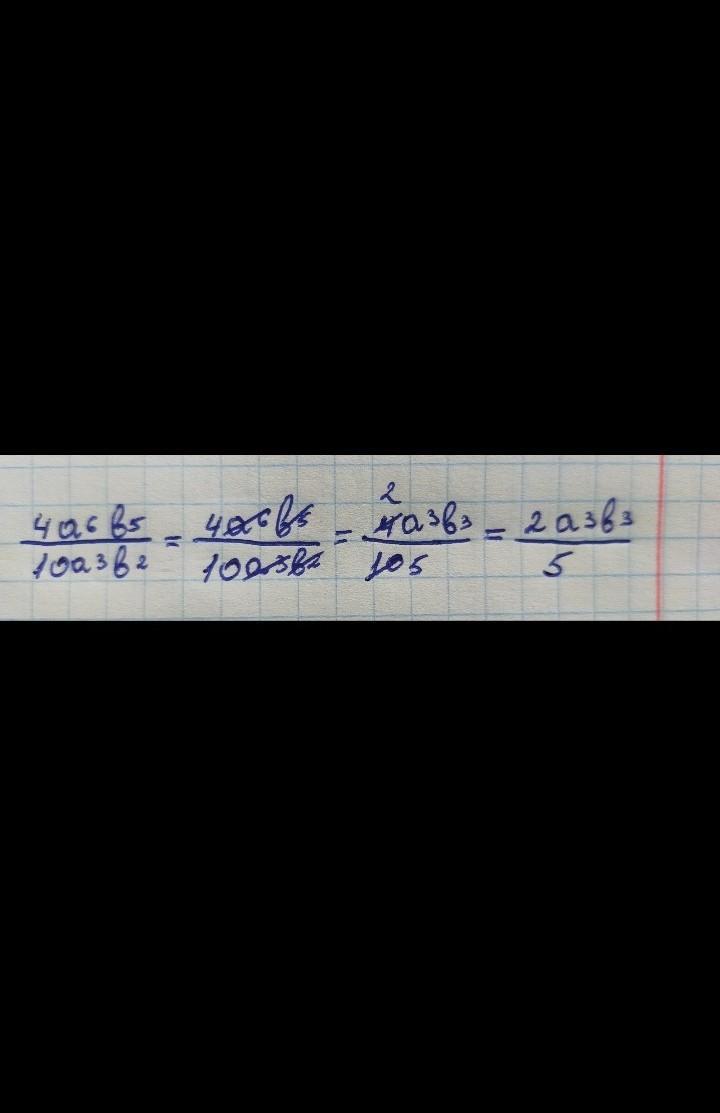 4a⁶b⁵/10a³b² = 4a⁶b⁵/10a³b² = 2 4a³b³/10 5 = 2a³b³/5